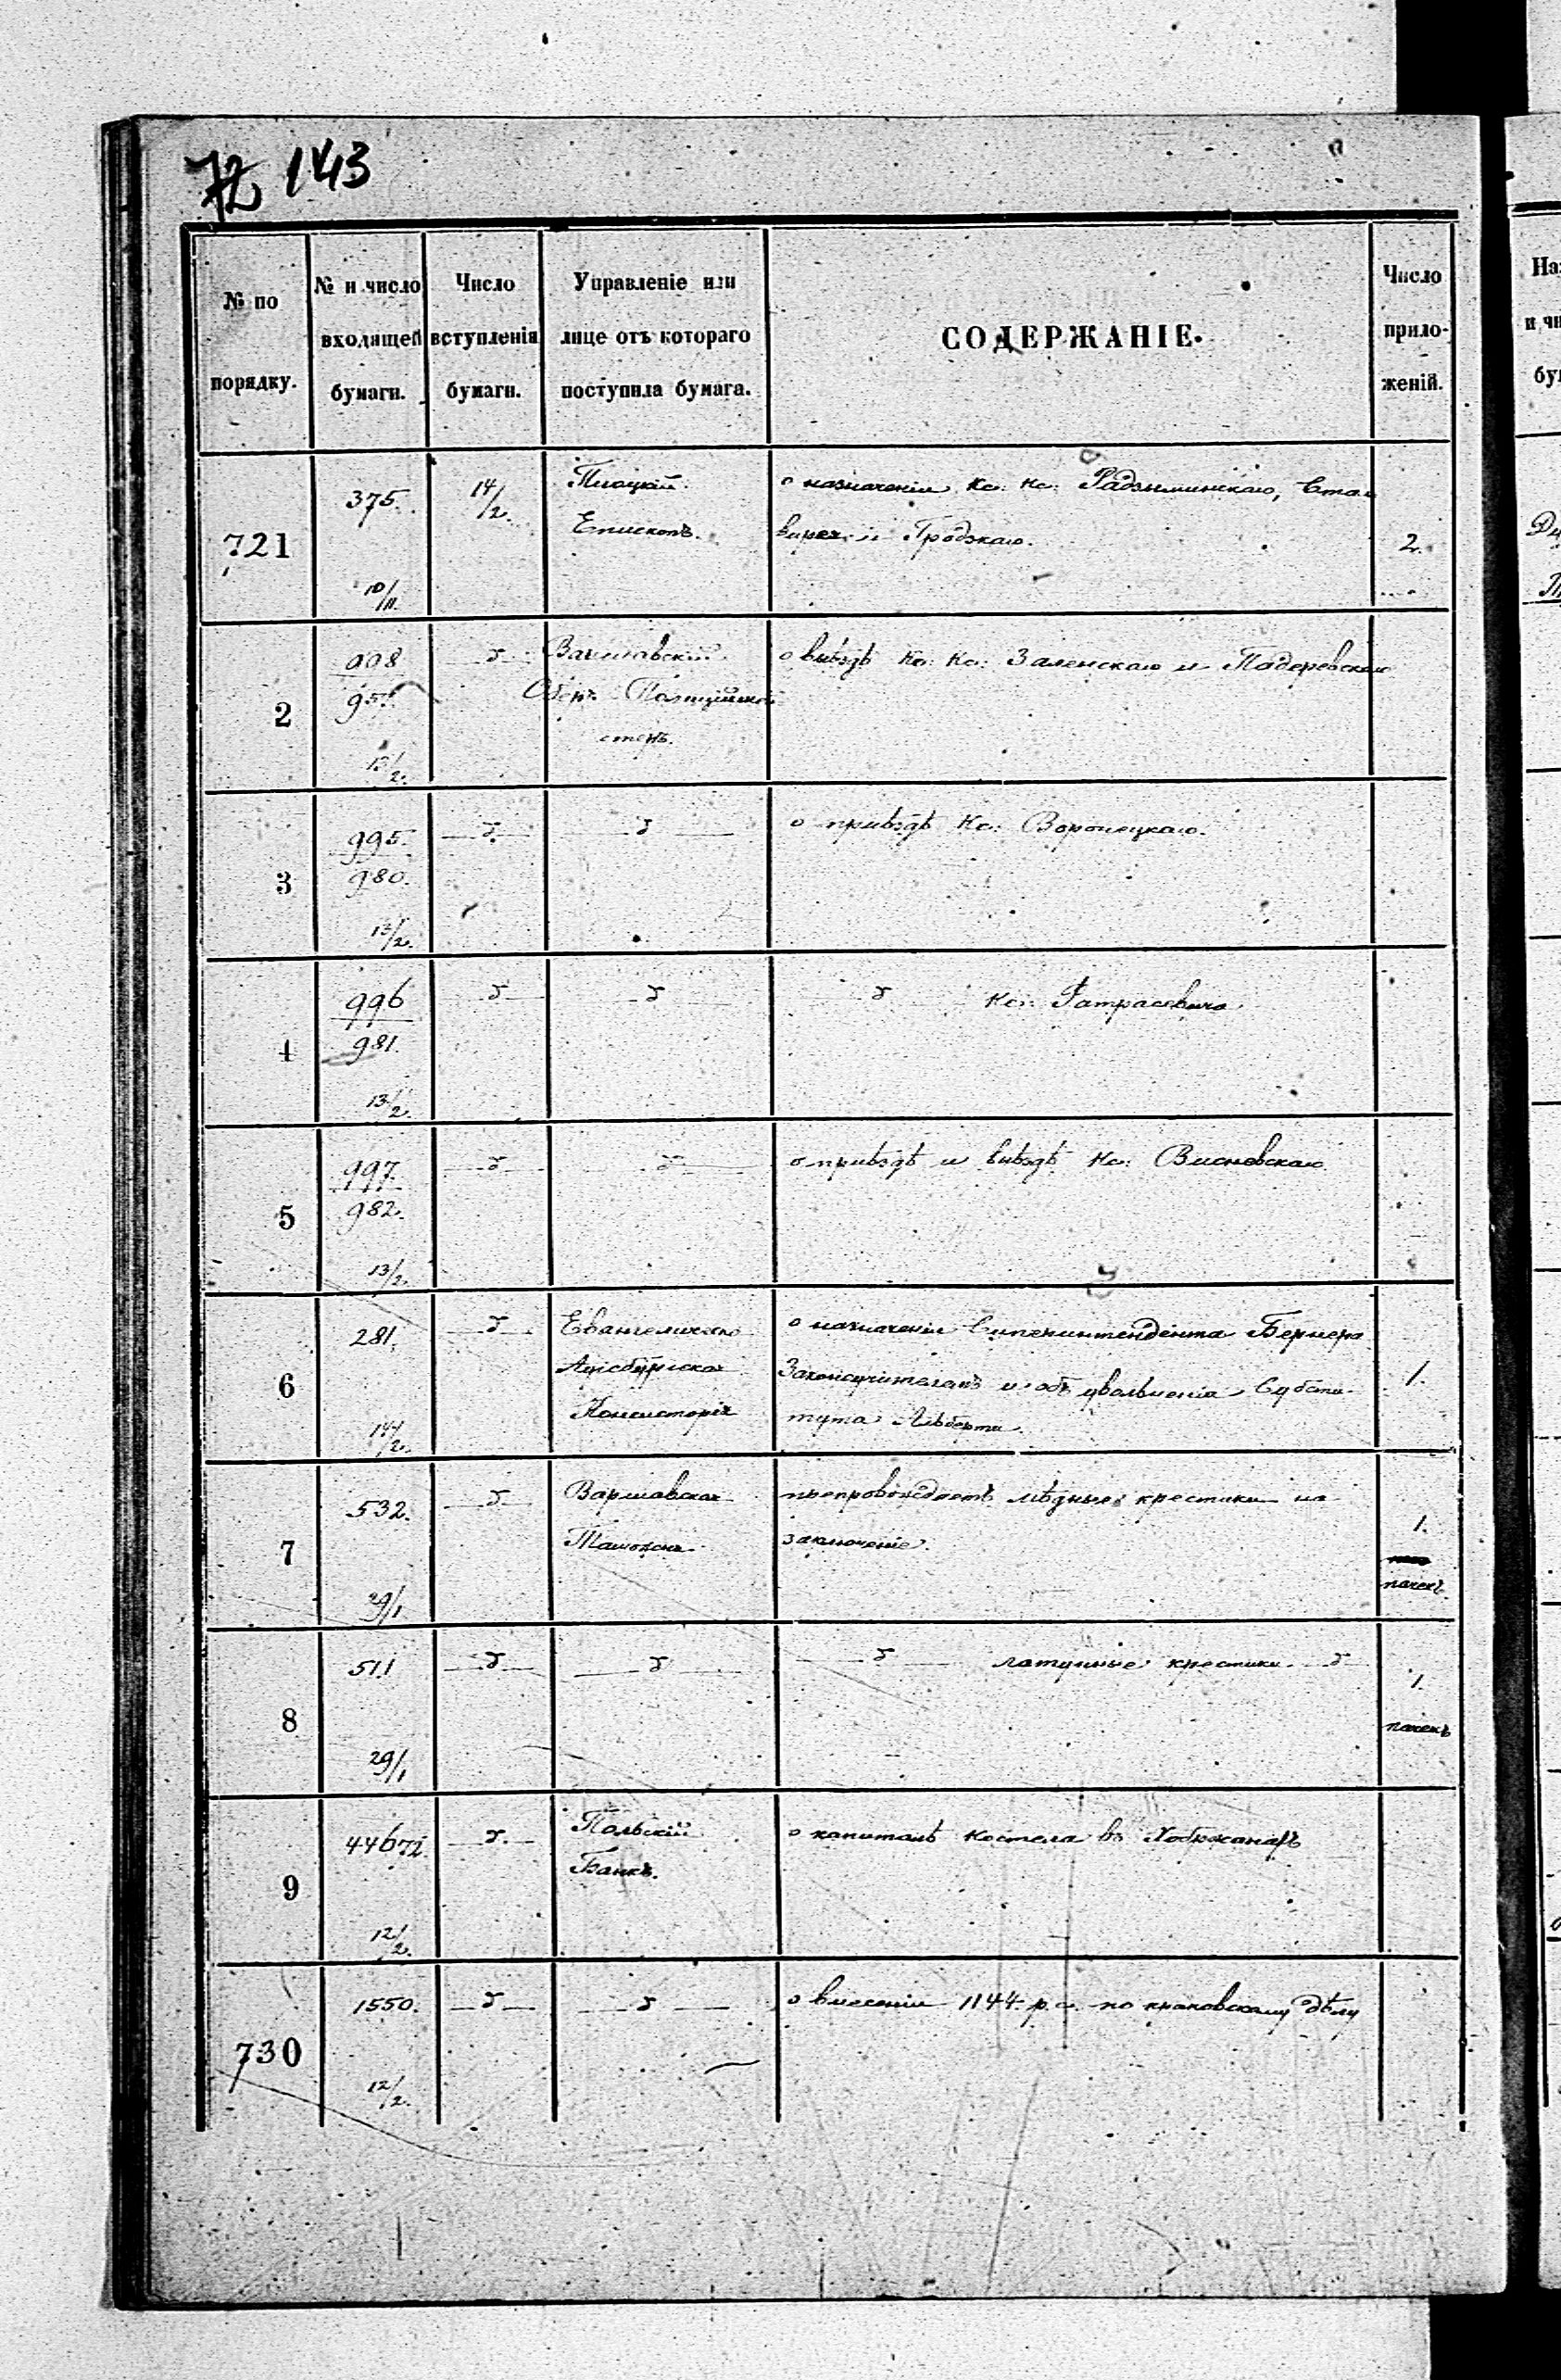 72 143
№ по порядку.
№ и число входящей бумаги.
Число вступленія бумаги.
Управленіе или лице отъ котораго поступила бумага.
СОДЕРЖАНІЕ.
Число прило- женій.
721
375.
10/II.
14/2.
Плоцкій
Епископъ.
о назначеніи Кс: Кс: Радзиминскаго,
и Гродзкаго.
2.
2
95
13/2.
Варшавскій
Оберъ Полицiймей
стеръ.
о выѣздѣ Кс: Кс: Заленскаго и Падеревскаго
3
995.
980.
13/2.
о пріѣздѣ Кс: Воронецкаго.
4
996
981.
13/2.
Кс:
5
997.
982.
13/2.
о пріѣздѣ и выѣздѣ Кс: Висновскаго
6
281.
14/2.
Евангелическо
Аугсбургская
Консисторія
о назначеніи Суперинтендента Бернера
Законоучителемъ и объ увольненіи Субсти-
тута Альберти.
1.
7
532.
29/1
Варшавская
Таможня
препровождаетъ мѣдные крестики на
заключеніе.
1.
пачекъ
8
511
29/1
латунные крестики
1.
пачекъ
9
44672
12/2.
Польскій
Банкъ.
о капиталѣ костела въ
730
1550.
12/2.
о внесеніи 1144 р.с. по краковскому дѣлу